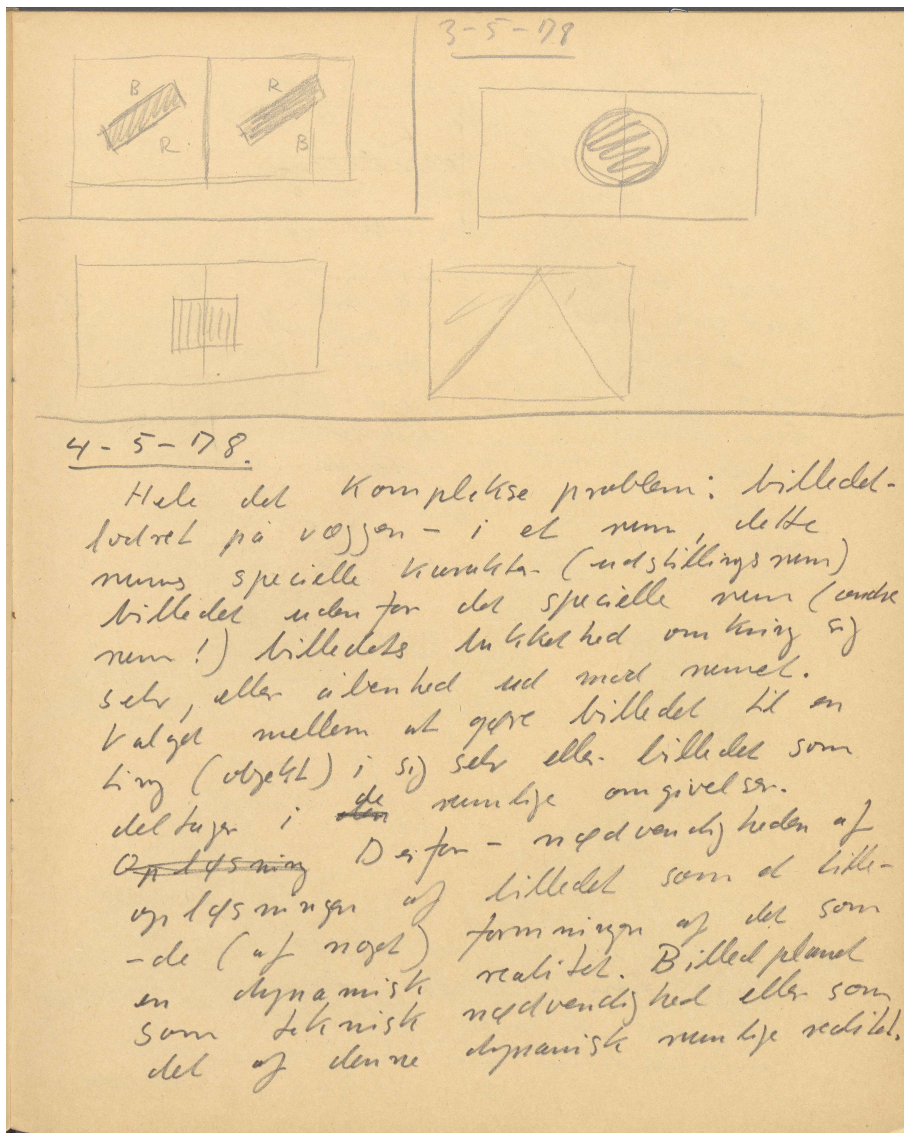 3-5-78
B
R
R
B
4-5-78.
Hele det komplekse problem: billedet-
lodret på væggen - i et rum, dette
rums specielle karakter (udstillingsrum)
billedet uden for det specielle rum (andre
rum!) billedets lukkethed omkring sig
selv, eller åbenhed ud mod rumet.
Valget mellem at gøre billedet til en
ting (objekt) i sig selv eller billedet som
deltager i de rumlige omgivelser.
Opløsning Derfor - nødvendigheden af
opløsningen af billedet som et bille-
-de (af noget) formningen af det som
en dynamisk realitet. Billedplanet
som teknisk nødvendighed eller som
del af denne dynamisk rumlige realitet.